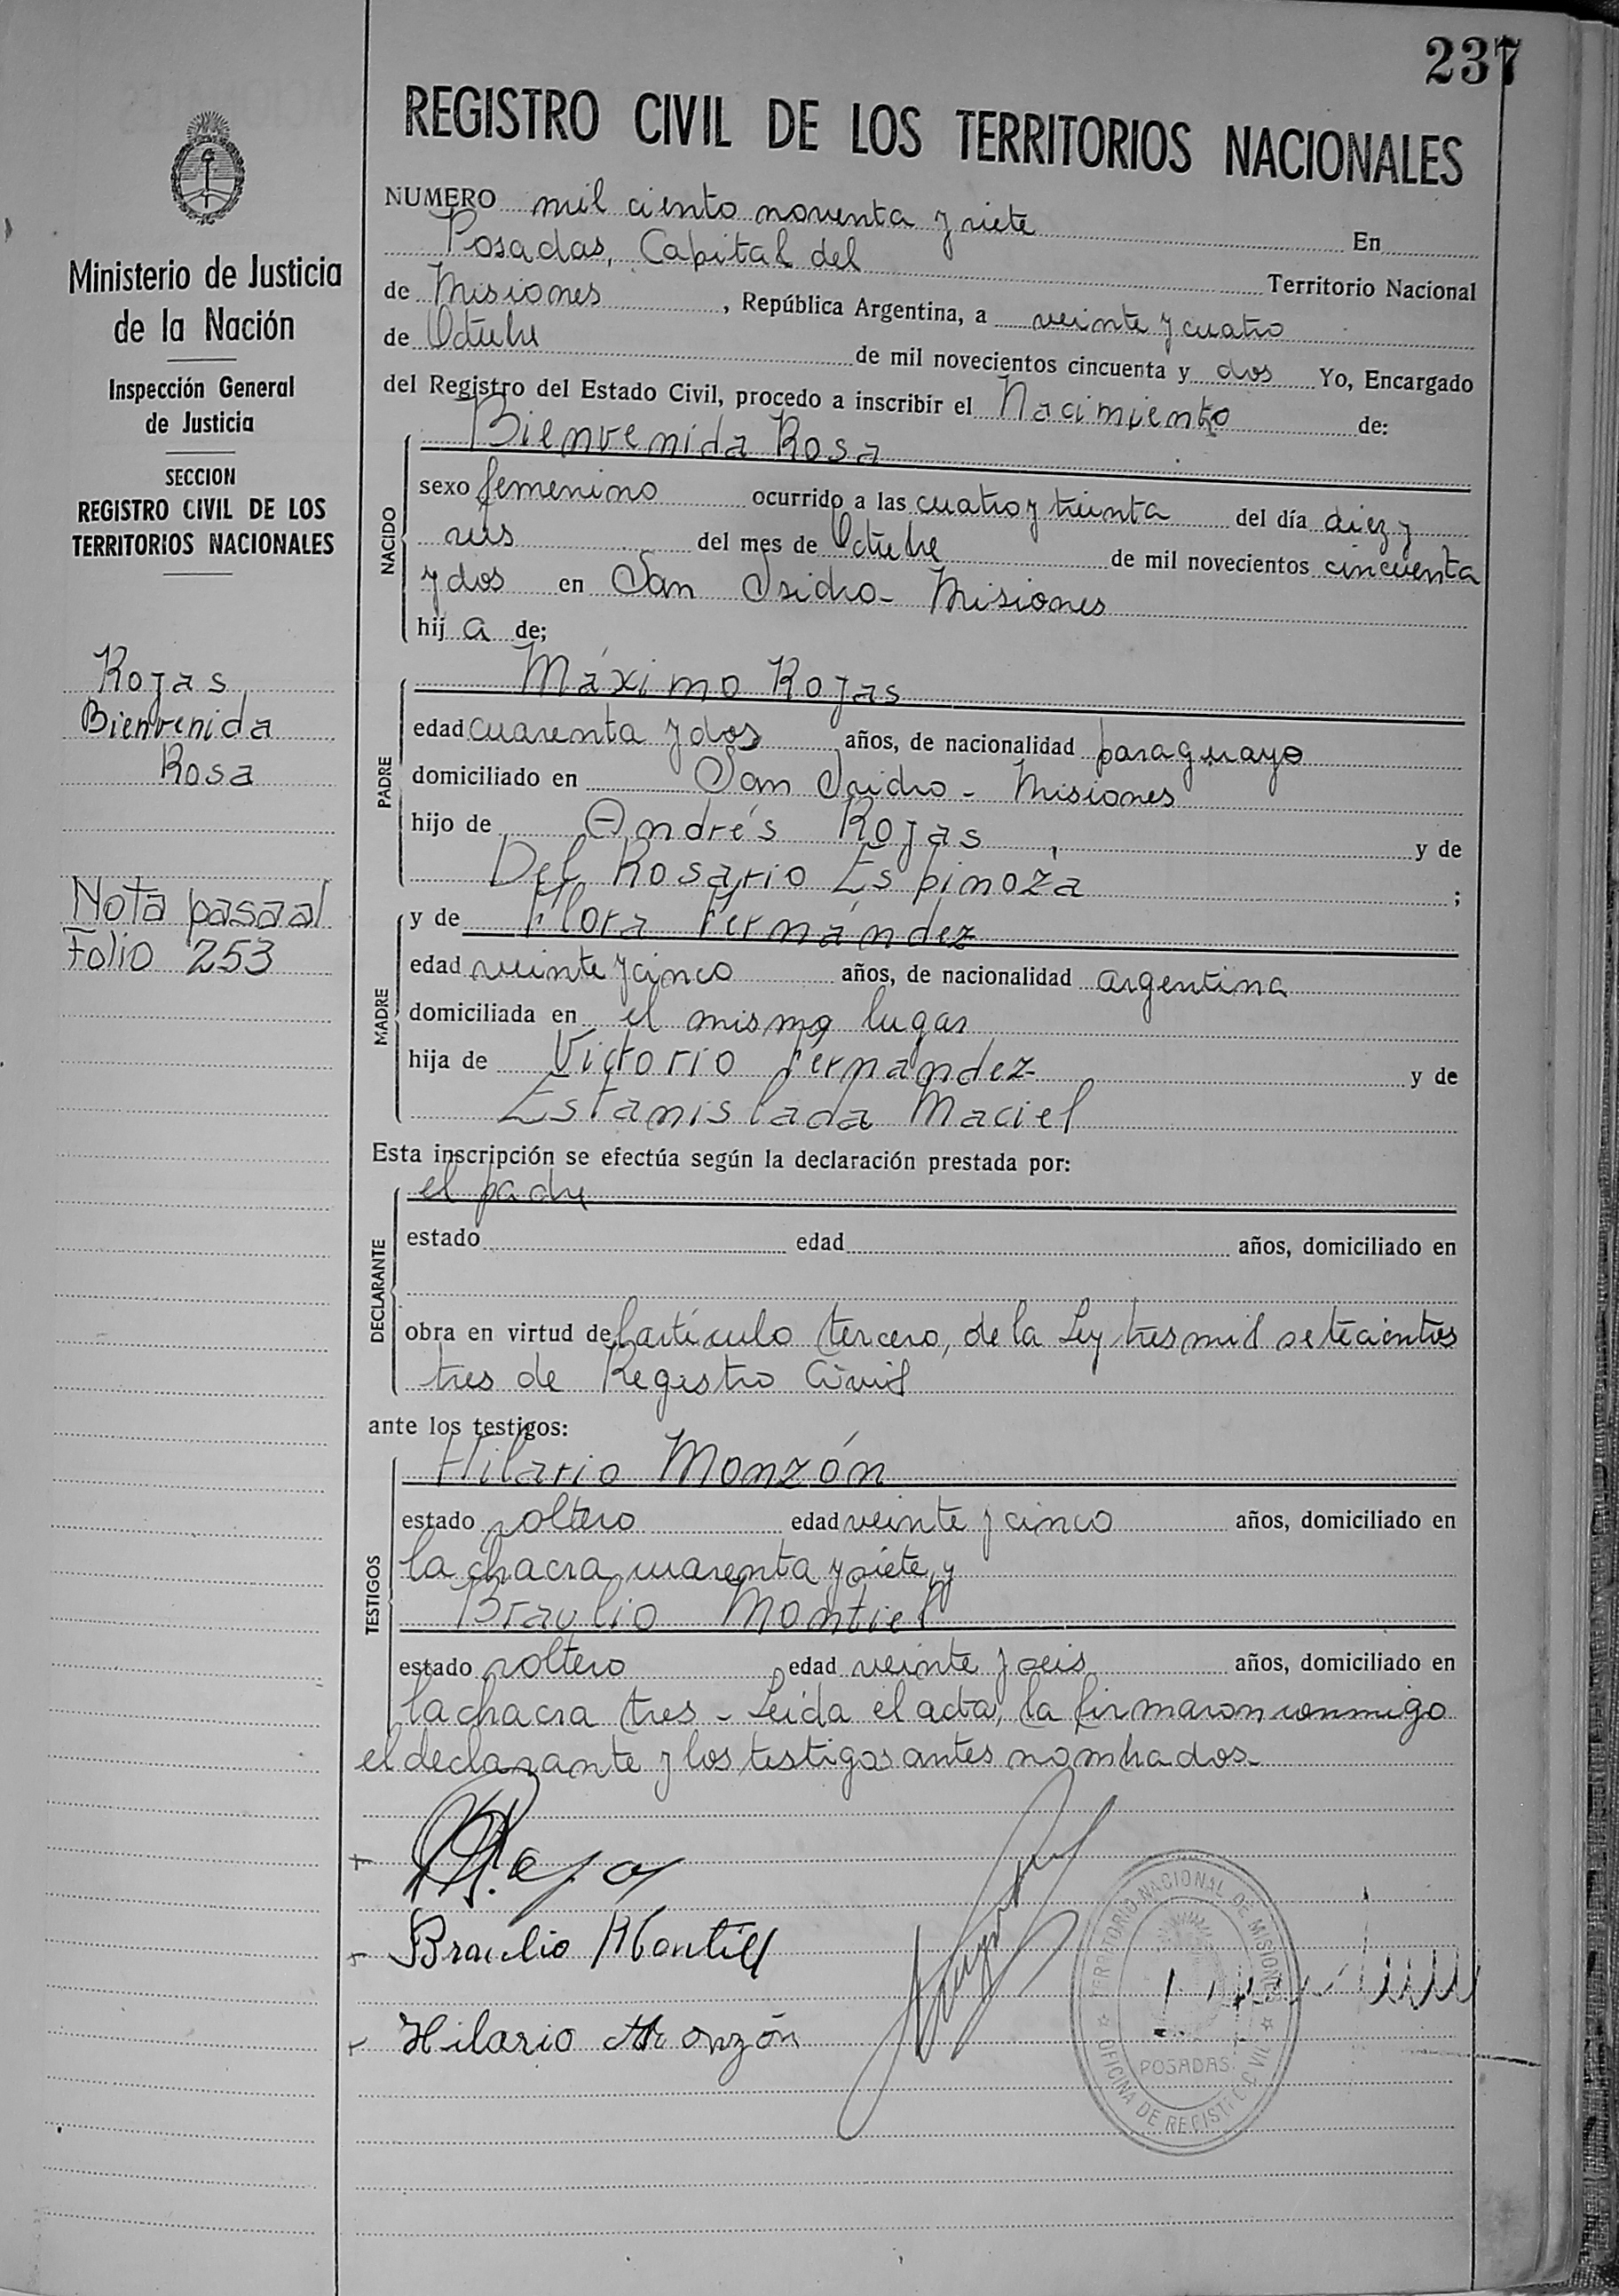 237
REGISTRO CIVIL DE LOS TERRITORIOS NACIONALES
Ministerio de Justicia
de la Nación
Inspección General
de Justicia
SECCION
REGISTRO CIVIL DE LOS
TERRITORIOS NACIONALES
Rojas,
Bienvenida
Rosa
Nota pasa al
Folio 253
NUMERO mil ciento noventa y siete En
Posadas, Capital del Territorio Nacional
de Misiones, República Argentina, a veinte y cuatro
de Octubre de mil novecientos cincuenta y dos Yo, Encargado
del Registro del Estado Civil, procedo a inscribir el Nacimiento de:
NACIDO
Bienvenida Rosa
sexo femenino ocurrido a las cuatro y treinta del día diez y
seis del mes de Octubre de mil novecientos cincuenta
y dos en San Isidro - Misiones
hij a de;
PADRE
Máximo Rojas
edad cuarenta y dos años, de nacionalidad paraguayo
domiciliado en San Isidro - Misiones
hijo de Andrés Rojas, y de
Del Rosario Espinoza ;
MADRE
y de Flora Fernández
edad veinte y cinco años, de nacionalidad argentina
domiciliada en el mismo lugar
hija de Victorio Fernández y de
Estanislada Maciel
Esta inscripción se efectúa según la declaración prestada por:
DECLARANTE
el padre
estado edad años, domiciliado en
obra en virtud del artículo tercero, de la Ley tres mil setecientos
tres de Registro Civil
ante los testigos:
TESTIGOS
Hilario Monzón
estado soltero edad veinte y cinco años, domiciliado en
la chacra cuarenta y siete, y
Braulio Montiel
estado soltero edad veinte y seis años, domiciliado en
la chacra tres - Leída el acta, la firmaron conmigo
el declarante y los testigos antes nombrados.
M. Rojas
Braulio Montiel
Hilario Monzón
TERRITORIO NACIONAL DE MISIONES
POSADAS
OFICINA DE REGISTRO CIVIL